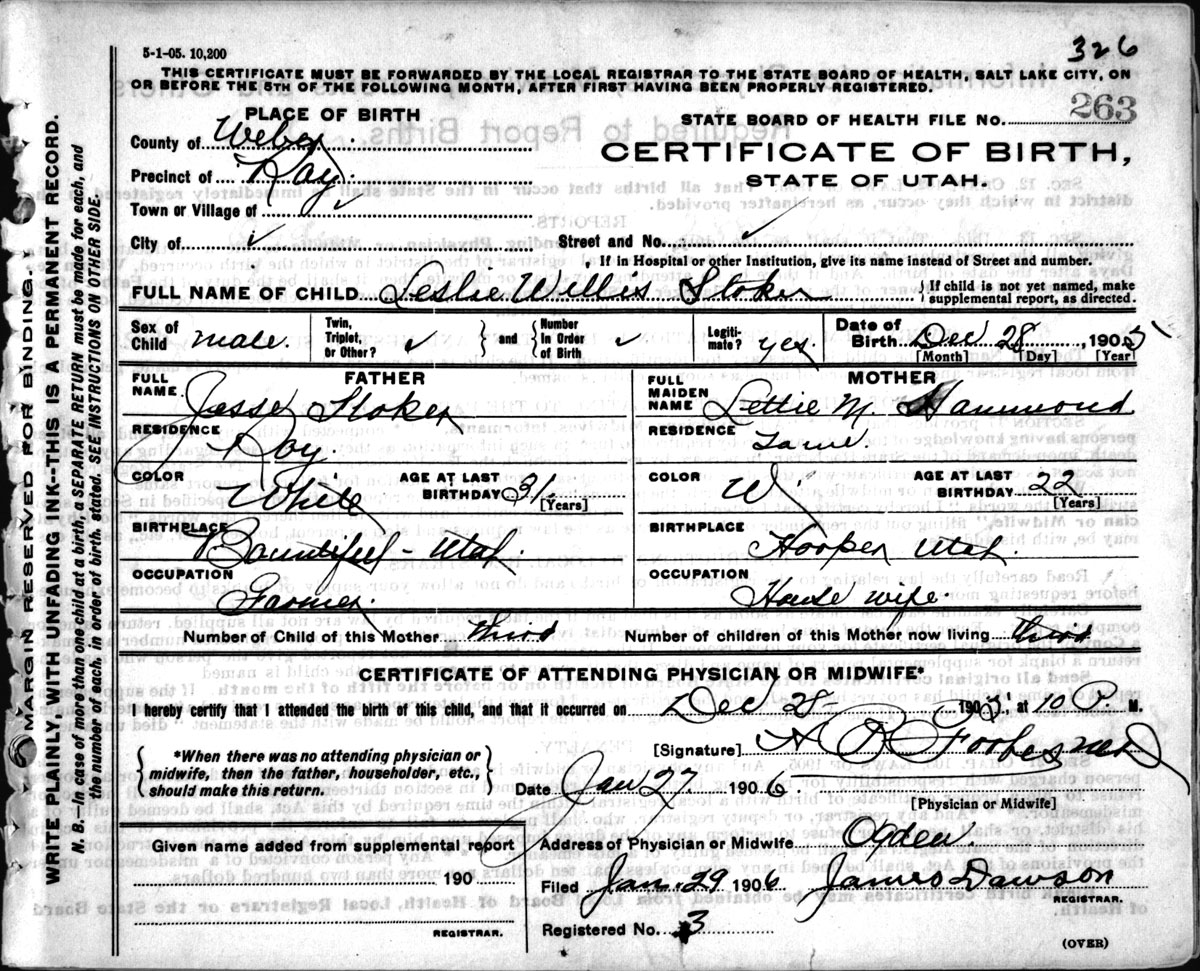 5-1-05. 10,200
326
THIS CERTIFICATE MUST BE FORWARDED BY THE LOCAL REGISTRAR TO THE STATE BOARD OF HEALTH, SALT LAKE CITY, ON
OR BEFORE THE 5TH OF THE FOLLOWING MONTH, AFTER FIRST HAVING BEEN PROPERLY REGISTERED.
PLACE OF BIRTH
STATE BOARD OF HEALTH FILE No. 263
County of Weber
CERTIFICATE OF BIRTH,
Precinct of
STATE OF UTAH.
Town or Village of ✓
City of ✓ Street and No. ✓
If in Hospital or other Institution, give its name instead of Street and number.
FULL NAME OF CHILD Leslie Willis Stoker { If child is not yet named, make
supplemental report, as directed.
Sex of Child male. Twin, Triplet, or Other? ✓ } and { Number In Order of Birth ✓ Legiti-mate? yes Date of Birth Dec 28, 1905
[Month] [Day] [Year]
FATHER
MOTHER
FULL NAME. Jesse Stoker
FULL MAIDEN NAME Lettie M. Hammond
RESIDENCE
RESIDENCE Same
COLOR White AGE AT LAST BIRTHDAY 31 [Years]
COLOR W AGE AT LAST BIRTHDAY 22 [Years]
BIRTHPLACE Bountiful - Utah.
BIRTHPLACE Hooper Utah.
OCCUPATION Farmer.
OCCUPATION House wife.
Number of Child of this Mother third Number of children of this Mother now living third
CERTIFICATE OF ATTENDING PHYSICIAN OR MIDWIFE*
I hereby certify that I attended the birth of this child, and that it occurred on Dec 28 - 190 , at 10 P. M.
{ *When there was no attending physician or
midwife, then the father, householder, etc.,
should make this return. }
[Signature]
Date Jan 27 1906
[Physician or Midwife]
Given name added from supplemental report
190
REGISTRAR.
Address of Physician or Midwife Ogden.
Filed Jan. 29 1906 James Dawson
REGISTRAR.
Registered No. 3
(OVER)
MARGIN RESERVED FOR BINDING.
WRITE PLAINLY, WITH UNFADING INK--THIS IS A PERMANENT RECORD.
N. B.—In case of more than one child at a birth, a SEPARATE RETURN must be made for each, and
the number of each, in order of birth, stated. SEE INSTRUCTIONS ON OTHER SIDE.